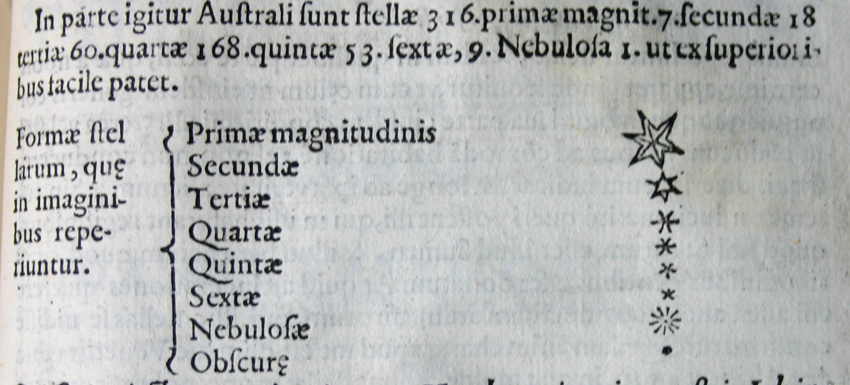 In parte igitur Auſtrali ſunt ſtellæ 316.primæ magnit.7.ſecundæ 18
tertiæ 60.quartæ 168.quintæ 53. ſextæ, 9. Nebuloſa 1. ut ex ſuperiori-
bus facile patet.
Formæ ſtel
larum, quę
in imagini-
bus repe-
riuntur.
Primæ magnitudinis
Secundæ
Tertiæ
Quartæ
Quintæ
Sextæ
Nebuloſæ
Obſcurę